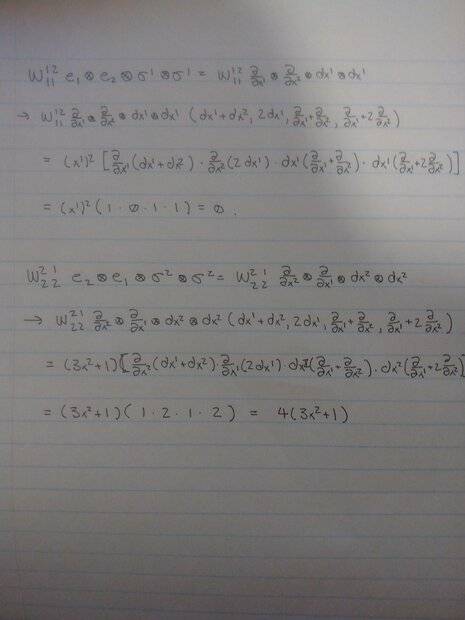 W¹²₁₁ e₁ ⊗ e₂ ⊗ σ¹ ⊗ σ¹ = W¹²₁₁ ∂/∂x¹ ⊗ ∂/∂x² ⊗ dx¹ ⊗ dx¹
→ W¹²₁₁ ∂/∂x¹ ⊗ ∂/∂x² ⊗ dx¹ ⊗ dx¹ (dx¹+dx², 2dx¹, ∂/∂x¹+∂/∂x², ∂/∂x¹+2∂/∂x²)
= (x¹)² [∂/∂x¹(dx¹+dx²) · ∂/∂x²(2dx¹) · dx¹(∂/∂x¹+∂/∂x²) · dx¹(∂/∂x¹+2∂/∂x²)]
= (x¹)² (1 · 0 · 1 · 1) = 0.
W²¹₂₂ e₂ ⊗ e₁ ⊗ σ² ⊗ σ² = W²¹₂₂ ∂/∂x² ⊗ ∂/∂x¹ ⊗ dx² ⊗ dx²
→ W²¹₂₂ ∂/∂x² ⊗ ∂/∂x¹ ⊗ dx² ⊗ dx² (dx¹+dx², 2dx¹, ∂/∂x¹+∂/∂x², ∂/∂x¹+2∂/∂x²)
= (3x²+1)[∂/∂x²(dx¹+dx²) · ∂/∂x¹(2dx¹) · dx²(∂/∂x¹+∂/∂x²) · dx²(∂/∂x¹+2∂/∂x²)]
= (3x²+1)(1 · 2 · 1 · 2) = 4(3x²+1)